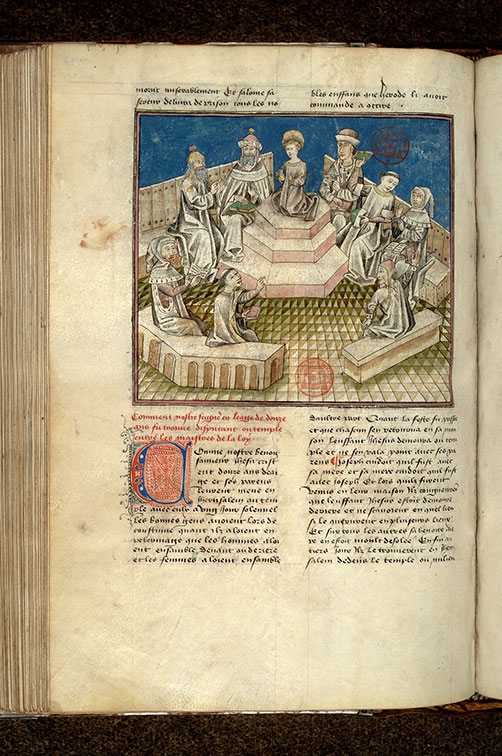 morut miserablement Et salome sa
seour delivra de prison tous les no
bles enffans que herode li avoit
commande a occire .
Comment nostre seigneur en leagge de douze
ans fu trouve disputant ou temple
entre les maistres de la loy
Comme nostre benoit
sauveur ihesu crist
eut douze ans deag
ge et ses parens
leurent mene en
iherusalem au tem
ple avec eulx a ung jour solemnel
les bonnes gens avoient lors de
coustume quant ilz aloient en
pelerinage que les hommes alo
ient ensamble devant ou deriere
et les femmes aloient ensamble
daultre part Quant la feste fu passee
et que chascun sen retourna en sa mai
son lenffant ihesus demoura ou tem
ple et ne sen rala point avec ses pa
rens Joseph cuidoit quil fust avec
sa mere et sa mere cuidoit quil fust
avec joseph Et lors quilz furent
venus en leur maison
que lenffant ihesus estoit demoure
deriere et ne scavoient en quel lieu
la le quirent en plusieurs lieux
Et sur tous les autres sa benoite me
re en estoit moult desolee En fin au
tiers jour ilz le trouverent en iheru
salem dedens le temple ou milieu